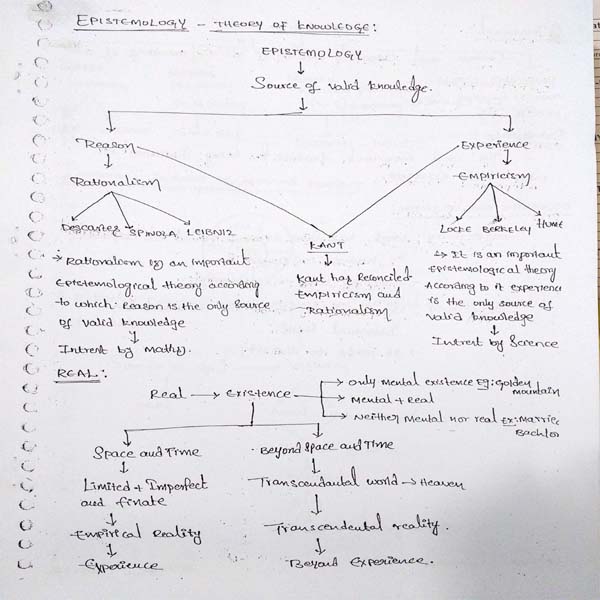 EPISTEMOLOGY - THEORY OF KNOWLEDGE:
EPISTEMOLOGY
Source of valid knowledge.
Reason
Experience
Rationalism
Empiricism
Descartes SPINOZA LEIBNIZ
KANT
LOCKE BERKELEY HUME
Rationalism is an important
Epistemological theory according
to which Reason is the only source
of valid knowledge
Intrest by maths.
Kant has Reconciled
Empiricism and
Rationalism
It is an important
Epistemological theory
According to it experience
is the only source of
valid knowledge
Intrest by Science
REAL:
Real → Existence
→ only mental existence Eg: Golden
mountain
→ Mental + Real
→ Neither Mental nor real Ex: Married
Bachlor
Space and Time
Beyond Space and Time
Limited + Imperfect
and finate
Transcendantal world → Heaven
Empirical Reality
Transcendental reality.
Experience
Beyond Experience.